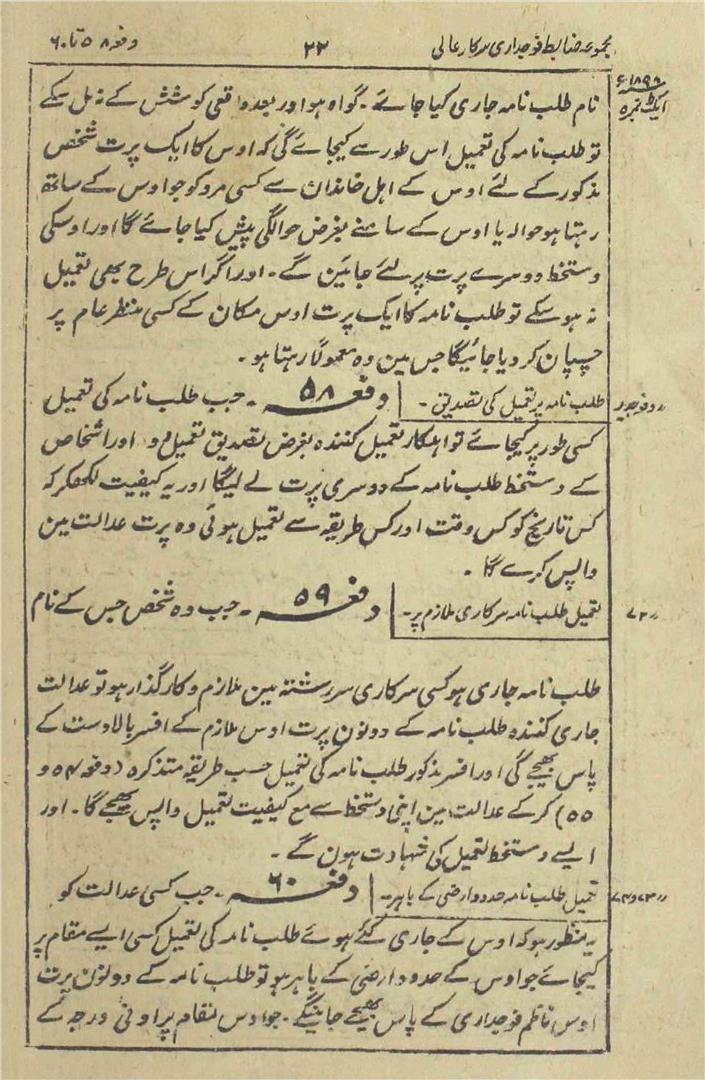 مجموعہ ضابطہ فوجداری سرکار عالی ۲۲ دفعہ ۵۸ تا ۶۰
ایکٹ نمبر ۵ ۱۸۹۸ء
نام طلب نامہ جاری کیا جائے ۔ گواہ ہو اور بعد واقعی کوشش کے نہ مل سکے
تو طلب نامہ کی تعمیل اس طور سے کیجائے گی کہ اوس کا ایک پرت شخص
مذکور کے لئے اوس کے اہل خاندان سے کسی مرد کو جو اوس کے ساتھ
رہتا ہو حوالہ یا اوس کے سامنے بغرض حوالگی پیش کیا جائے گا اور اوسکی
دستخط دوسرے پرت پر لئے جائین گے ۔ اور اگر اس طرح بھی تعمیل
نہ ہو سکے تو طلب نامہ کا ایک پرت اوس مکان کے کسی منظر عام پر
چسپان کر دیا جائیگا جس مین وہ معمولاً رہتا ہو ۔
طلب نامہ پر تعمیل کی تصدیق ۔ دفعہ ۵۸ ۔ جب طلب نامہ کی تعمیل
رر دفعہ جدید
کسی طور پر کیجائے تو اہلکار تعمیل کنندہ بغرض تصدیق تعمیل اور اشخاص
کے دستخط طلب نامہ کے دوسری پرت لے لیگا اور یہ کیفیت لکھکر کہ
کس تاریخ کو کس وقت اور کس طریقہ سے تعمیل ہوئی وہ پرت عدالت مین
واپس کرے گا ۔
تعمیل طلب نامہ سرکاری ملازم پر ۔ دفعہ ۵۹ ۔ جب وہ شخص جس کے نام
رر ۷۲
طلب نامہ جاری ہو کسی سرکاری سررشتہ مین ملازم و کارگذار ہو تو عدالت
جاری کنندہ طلب نامہ کے دونون پرت اوس ملازم کے افسر بالا دست کے
پاس بھیجے گی اور افسر مذکور طلب نامہ کی تعمیل حسب طریقہ متذکرہ (دفعہ ۵۴ و
۵۵) کر کے عدالت مین اپنی دستخط سے مع کیفیت تعمیل واپس بھیجے گا ۔ اور
ایسے دستخط تعمیل کی شہادت ہون گے ۔
تعمیل طلب نامہ حدود ارضی کے باہر ۔ دفعہ ۶۰ ۔ جب کسی عدالت کو
رر ۷۳ و ۷۴
یہ منظور ہو کہ اوس کے جاری کئے ہوئے طلب نامہ کی تعمیل کسی ایسے مقام پر
کیجائے جو اوس کے حدود ارضی کے باہر ہو تو طلب نامہ کے دونون پرت
اوس ناظم فوجداری کے پاس بھیجے جاینگے ۔ جو اوس مقام پر اونٰی درجہ کے